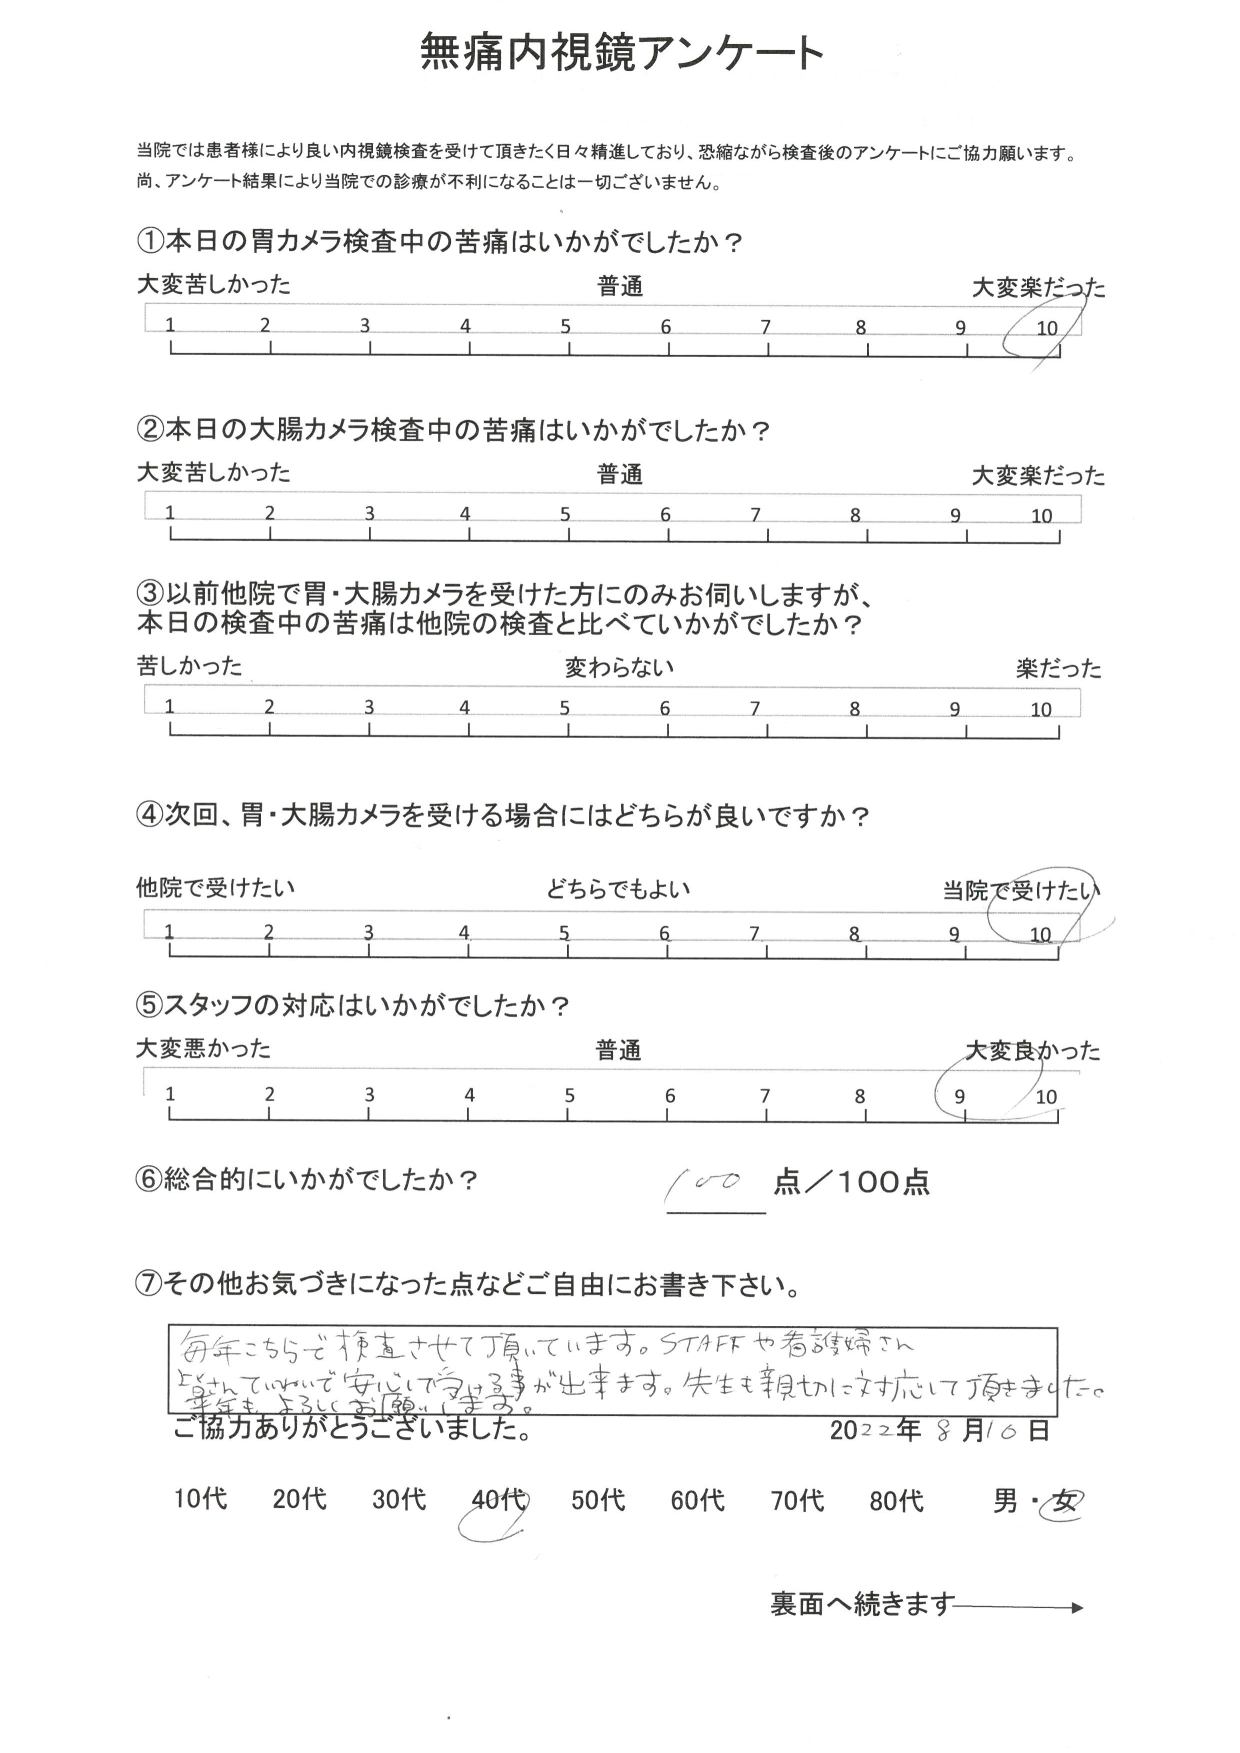 無痛内視鏡アンケート
当院では患者様により良い内視鏡検査を受けて頂きたく日々精進しており、恐縮ながら検査後のアンケートにご協力願います。
尚、アンケート結果により当院での診療が不利になることは一切ございません。
①本日の胃カメラ検査中の苦痛はいかがでしたか？
大変苦しかった 普通 大変楽だった
1 2 3 4 5 6 7 8 9 10
②本日の大腸カメラ検査中の苦痛はいかがでしたか？
大変苦しかった 普通 大変楽だった
1 2 3 4 5 6 7 8 9 10
③以前他院で胃・大腸カメラを受けた方にのみお伺いしますが、
本日の検査中の苦痛は他院の検査と比べていかがでしたか？
苦しかった 変わらない 楽だった
1 2 3 4 5 6 7 8 9 10
④次回、胃・大腸カメラを受ける場合にはどちらが良いですか？
他院で受けたい どちらでもよい 当院で受けたい
1 2 3 4 5 6 7 8 9 10
⑤スタッフの対応はいかがでしたか？
大変悪かった 普通 大変良かった
1 2 3 4 5 6 7 8 9 10
⑥総合的にいかがでしたか？ 100 点／100点
⑦その他お気づきになった点などご自由にお書き下さい。
毎年こちらで検査させて頂いています。STAFFや看護婦さん
皆さんていねいで安心して受ける事が出来ます。先生も親切に対応して頂きました。
来年もよろしくお願いします。
ご協力ありがとうございました。 2022年 8月10日
10代 20代 30代 40代 50代 60代 70代 80代 男・女
裏面へ続きます